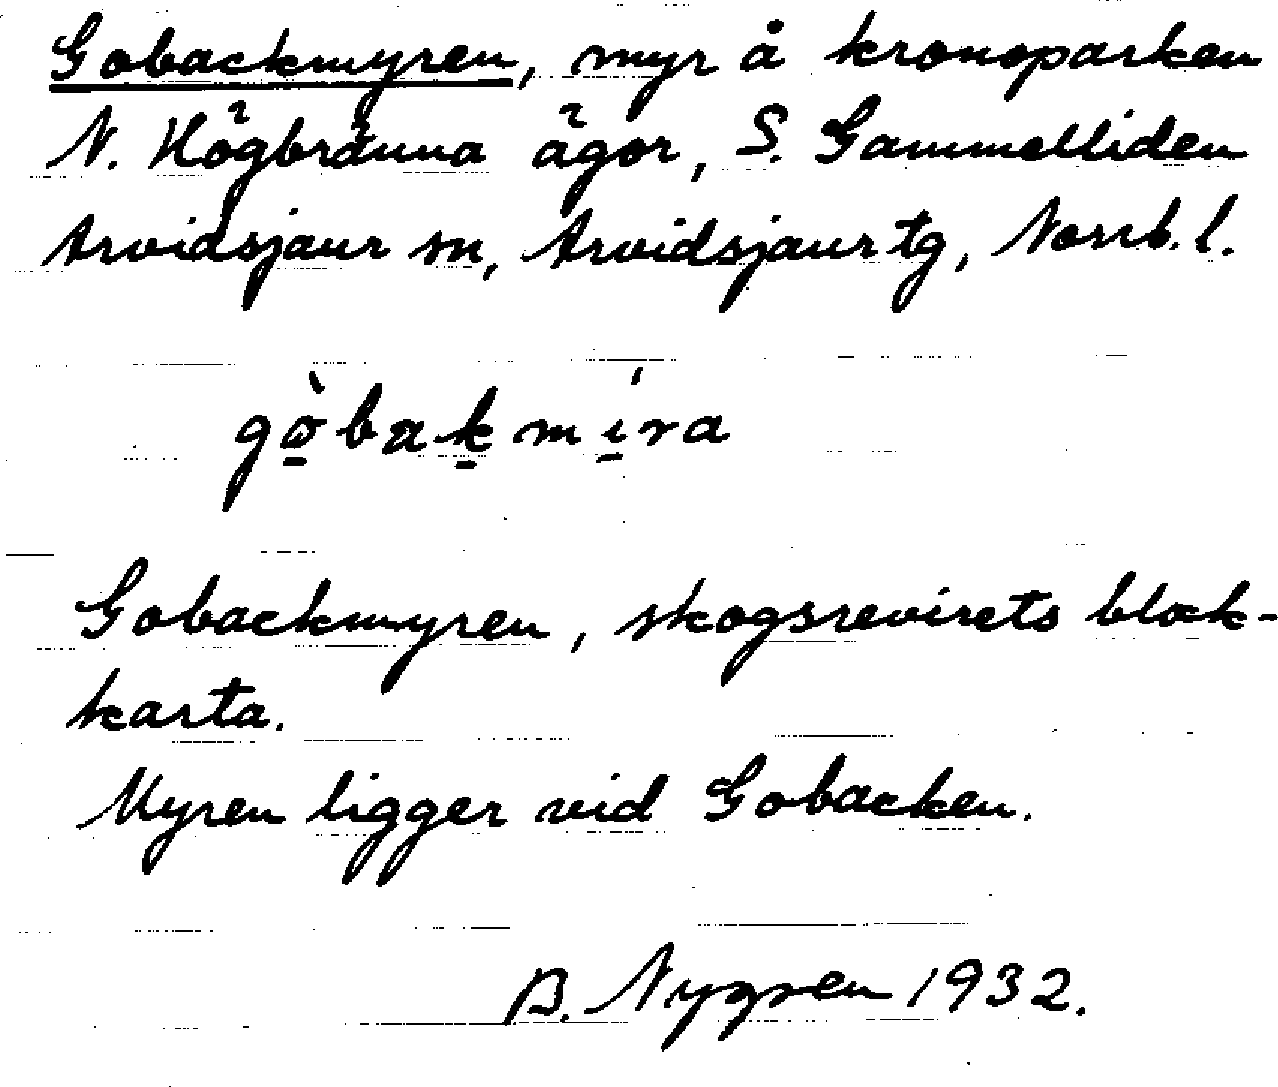 Gobackmyren, myr å kronoparken
N. Högbränna ägor, S. Gammelliden
Arvidsjaur sn, Arvidsjaur tg, Norrb. l.
gò̱baḵmí̱ra
Gobackmyren, skogsrevirets block-
karta.
Myren ligger vid Gobacken.
B. Nygren 1932.